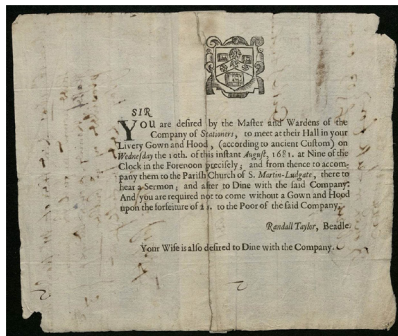 SIR
YOU are desired by the Master and Wardens of the
Company of Stationers, to meet at their Hall in your
Livery Gown and Hood, (according to ancient Custom) on
Wednesday the 10th. of this instant August, 1681. at Nine of the
Clock in the Forenoon precisely; and from thence to accom-
pany them to the Parish Church of S. Martin-Ludgate, there to
hear a Sermon; and after to Dine with the said Company:
And you are required not to come without a Gown and Hood
upon the forfeiture of to the Poor of the said Company.
Randall Taylor, Beadle.
Your Wife is also desired to Dine with the Company.